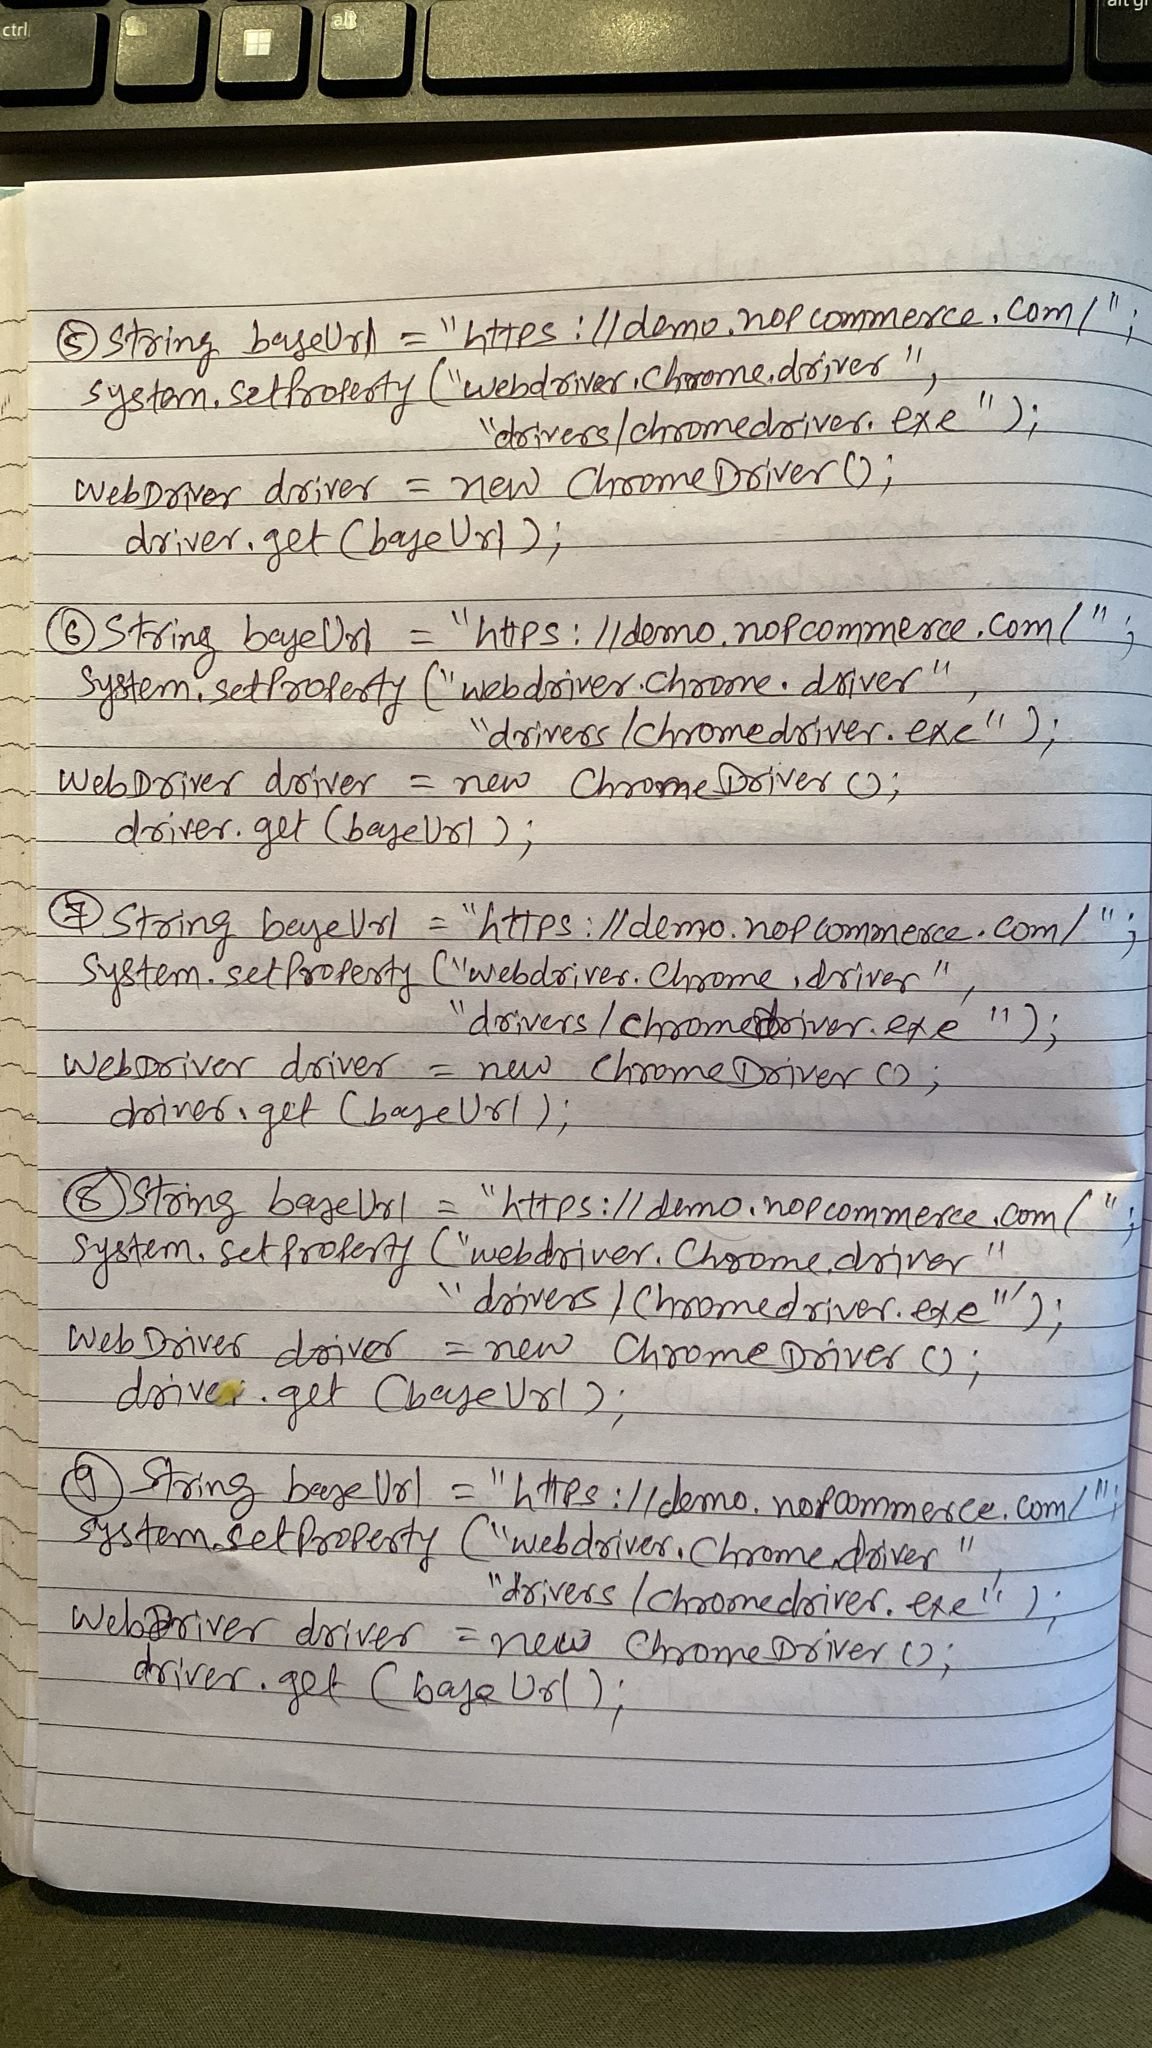 ctrl
alt
alt gr
⑤ String baseUrl = "https://demo.nopcommerce.com/";
system.setProperty ("webdriver.Chrome.driver",
"drivers/chromedriver.exe");
WebDriver driver = new ChromeDriver();
driver.get (baseUrl);
⑥ String baseUrl = "https://demo.nopcommerce.com/";
System.setProperty ("webdriver.Chrome.driver",
"drivers/chromedriver.exe");
WebDriver driver = new ChromeDriver();
driver.get (baseUrl);
⑦ String baseUrl = "https://demo.nopcommerce.com/";
System.setProperty ("webdriver.Chrome.driver",
"drivers/chromedriver.exe");
WebDriver driver = new ChromeDriver();
driver.get (baseUrl);
⑧ String baseUrl = "https://demo.nopcommerce.com/";
System.setProperty ("webdriver.Chrome.driver"
"drivers/Chromedriver.exe");
WebDriver driver = new ChromeDriver();
driver.get (baseUrl);
⑨ String baseUrl = "https://demo.nopcommerce.com/";
System.setProperty ("webdriver.Chrome.driver",
"drivers/chromedriver.exe");
WebDriver driver = new ChromeDriver();
driver.get (baseUrl);